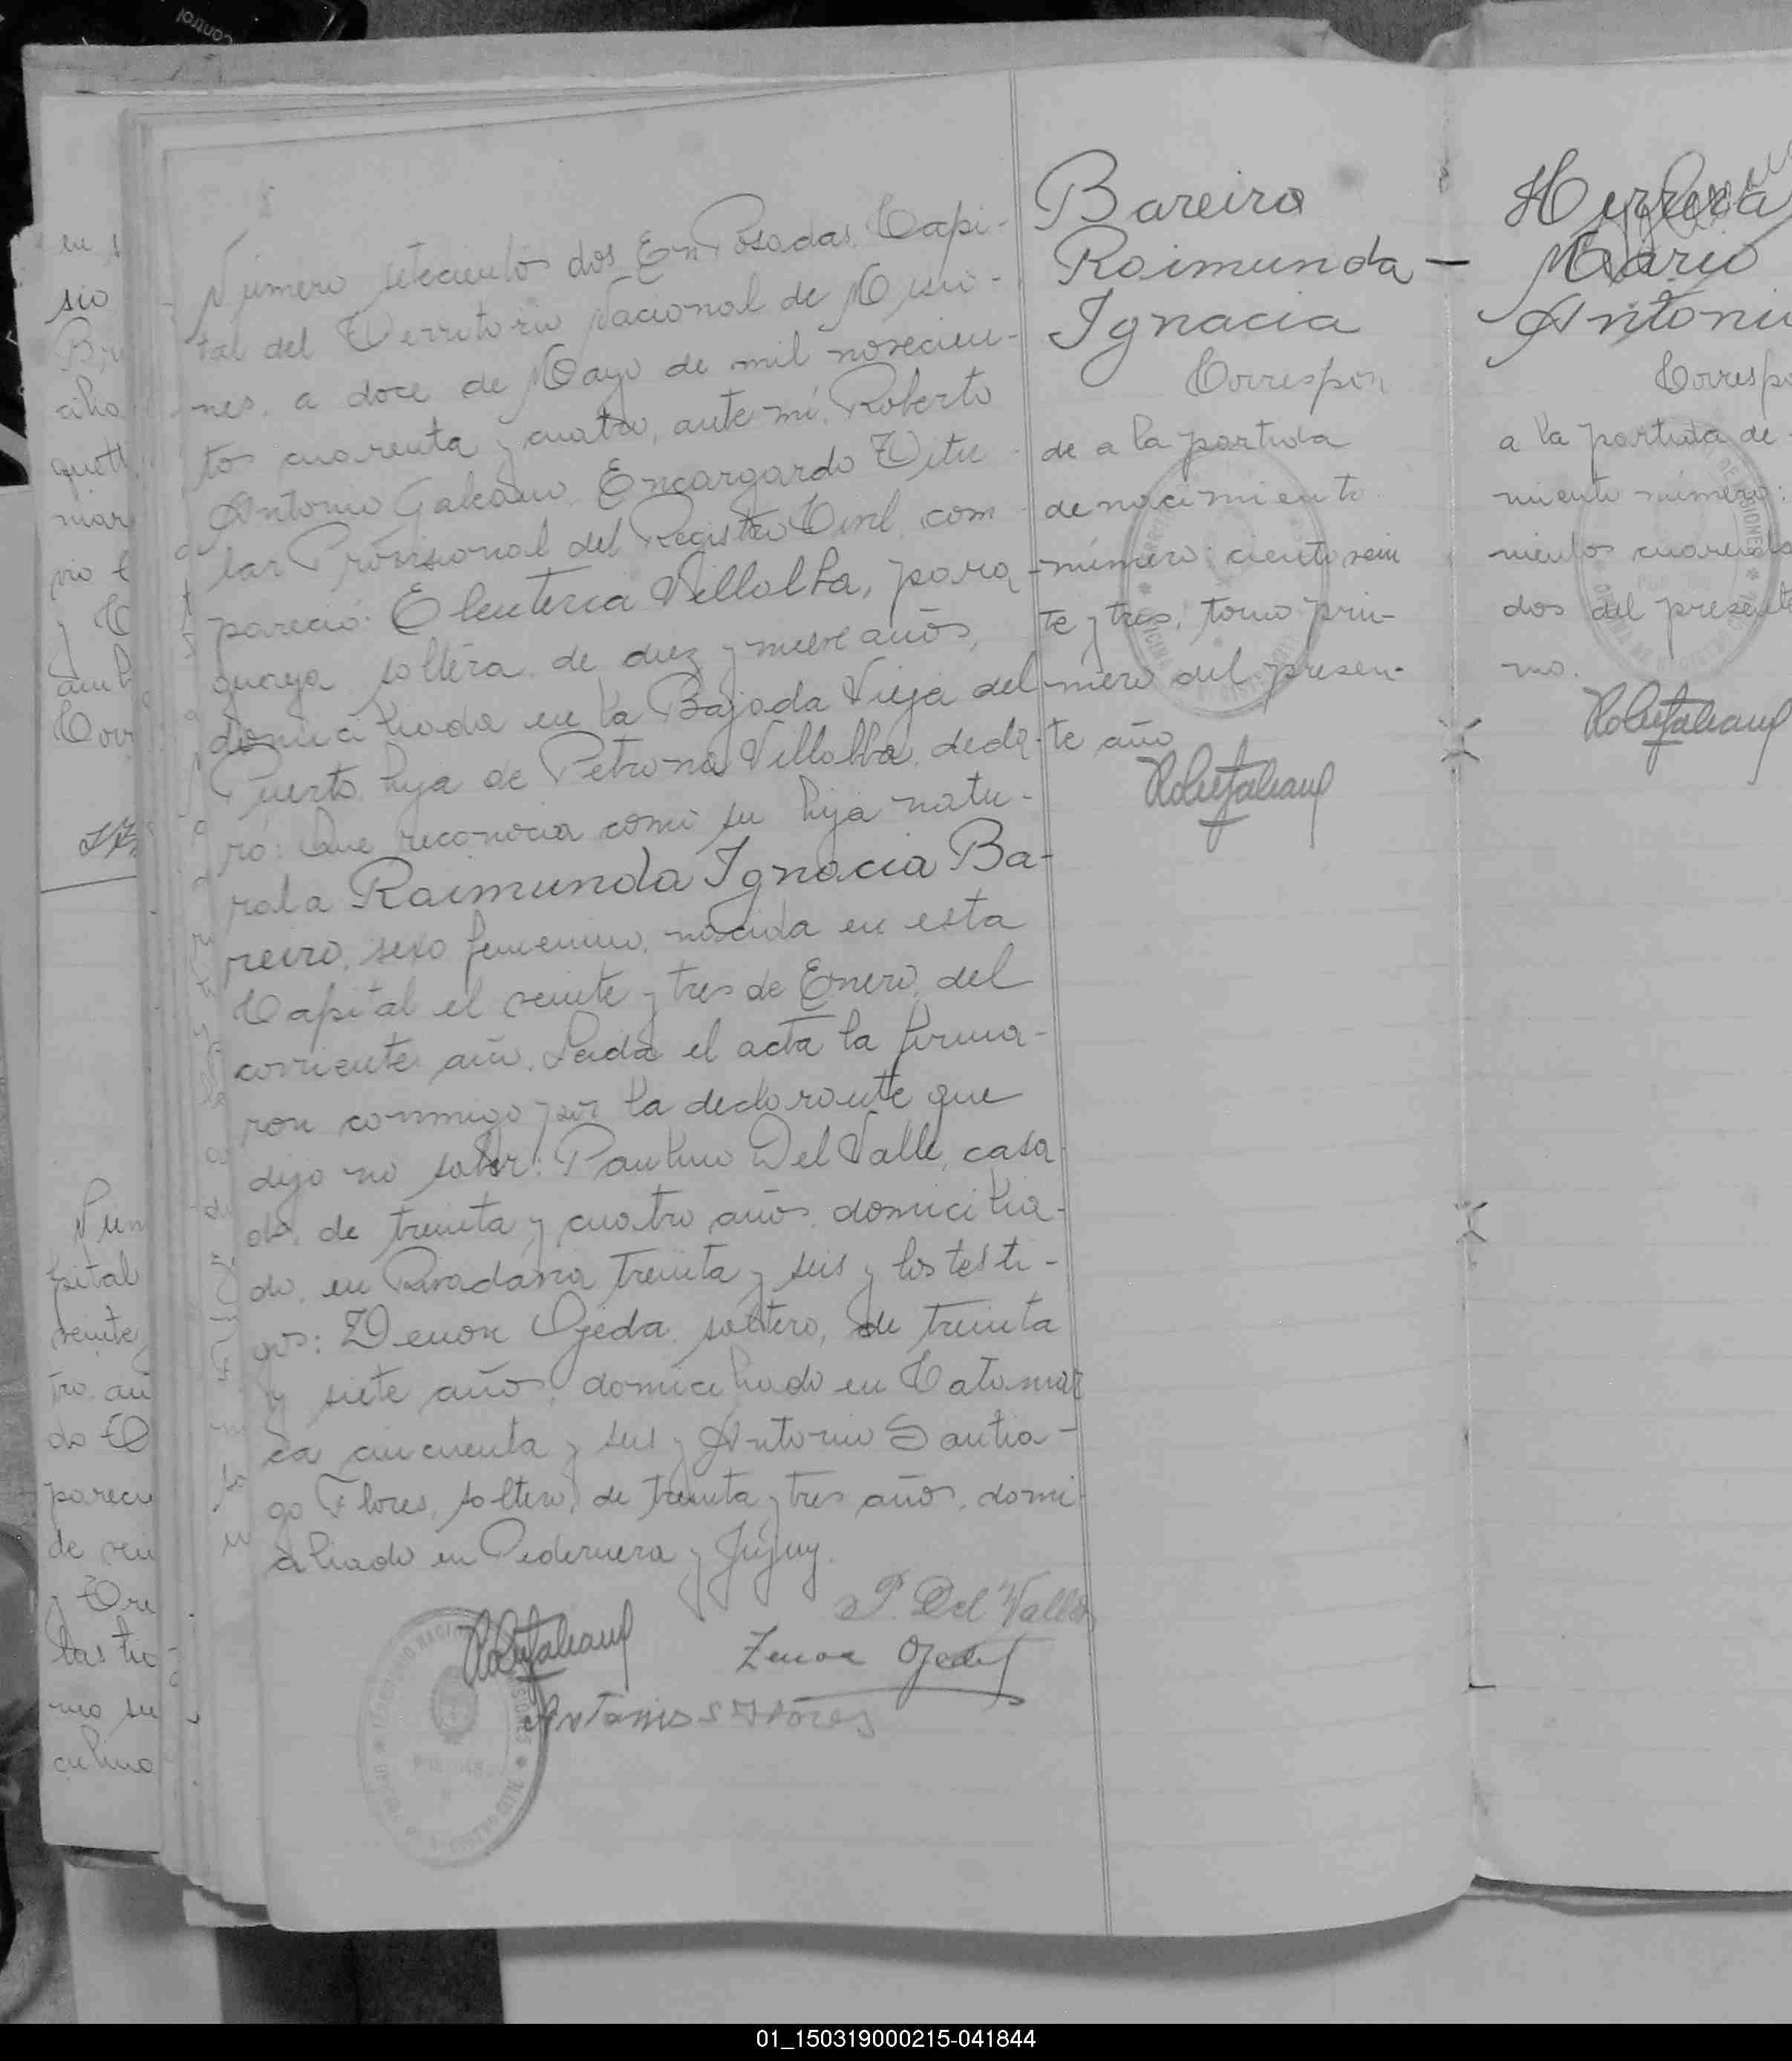 Número setecientos dos En Posadas, Capi-
tal del Territorio Nacional de Misio-
nes, a doce de Mayo de mil novecien-
tos cuarenta y cuatro, ante mí, Roberto
Antonio Galeano, Encargardo Titu-
lar Provisional del Registro Civil, com
pareció: Eleuteria Villalba, para-
guaya, soltera, de diez y nueve años,
domiciliada en la Bajada Vieja del
Puerto, hija de Petrona Villalba, decla-
ró: Que reconocia como su hija natu-
ral a Raimunda Ignacia Ba-
reiro, sexo femenino, nacida en esta
Capital el veinte y tres de Enero, del
corriente año. Leida el acta la firma-
ron conmigo por la declarante que
dijo no saber: Paulino Del Valle, casa-
do, de treinta y cuatro años, domicilia-
do, en Rivadavia treinta y seis y los testi-
gos: Zenon Ojeda, soltero, de treinta
y siete años, domiciliado en Catamar
ca cincuenta y seis y Antonio Santia-
go Flores, soltero, de treinta y tres años, domi-
ciliado en Pedernera y Jujuy.
P. Del Valle
Zenon Ojeda
Antonio S Flores
Bareiro
Raimunda —
Ignacia
Correspon
de a la partida
de nacimiento
número: ciento vein
te y tres, tomo pri-
mero del presen-
te año
Herrera
Mario
Antonio
Corresp
a la partida de
miento número:
nientos cuarenta
dos del presente
no.
01_150319000215-041844